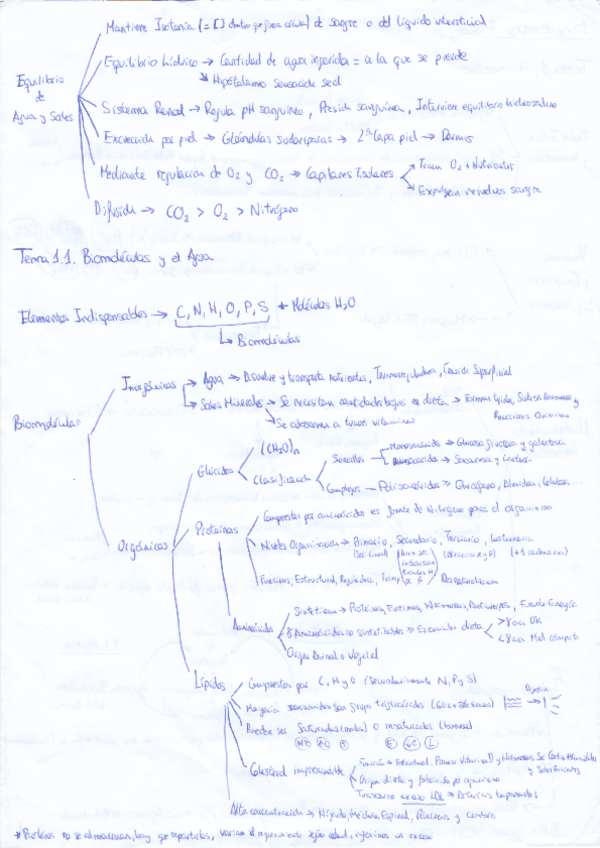 Mantiene Isotonía (= [] dentro que fuera célula) de sangre o del líquido intersticial
Equilibrio hídrico → Cantidad de agua ingerida = a la que se pierde
↳ Hipotálamo sensación sed
Equilibrio
de
Agua y Sales
Sistema Renal → Regula pH sanguíneo, Presión sanguínea, Interviene equilibrio hidrosalino
Excreción por piel → Glándulas sudoríparas → 2ª Capa piel → Dermis
Mediante regulación de O2 y CO2 → Capilares tisulares
Traen O2 + Nutrientes
Expulsan residuos sangre
Difusión → CO2 > O2 > Nitrógeno
Tema 1.1. Biomoléculas y el Agua
Elementos Indispensables → C, N, H, O, P, S * Moléculas H2O
↳ Biomoléculas
Biomoléculas
Inorgánicas
Agua → Disuelve y transporta nutrientes, Termorreguladora, Tensión Superficial
Sales Minerales → Se necesitan cantidades bajas en dieta → Forman tejidos, Síntesis Hormonas y
Reacciones Químicas
Se absorben a través vitaminas
Orgánicas
Glúcidos
(CH2O)n
Clasificación
Sencillos
Monosacáridos → Glucosa, fructosa y galactosa
→ Sacarosa y Lactosa
Complejos — Polisacáridos → Glucógeno, Almidón, Celulosa...
Proteínas
Compuestas por aminoácidos es fuente de Nitrógeno para el organismo
Niveles Organización → Primario, Secundario, Terciario, Cuaternario
Funciones, Estructural, Reguladora, Transp
Desnaturalización
Aminoácidos
Sintetizan → Proteínas, Enzimas, Hormonas, Anticuerpos, Fuente Energía
8 Aminoácidos no sintetizables → Esenciales dieta
>8aa OK
<8aa Mal
Origen Animal o Vegetal
Lípidos
Compuestos por C, H y O (Secundariamente N, P y S)
Mayoría son grupo triglicéridos (Glicerol + 3 ácidos)
Puede ser Saturadas (malas) o insaturadas (buenas)
Colesterol imprescindible
Función → Estructural, Precursor Vitamina D y Hormonas Se
y Sales Biliares
Origen dieta y fabricado por organismo
exceso LDL → Arterias taponadas
Alta concentración → Hígado, Médula Espinal, Páncreas y Cerebro
* Proteínas no se almacenan, hay que repartirlas, varían el requerimiento según edad, ingerimos un exceso